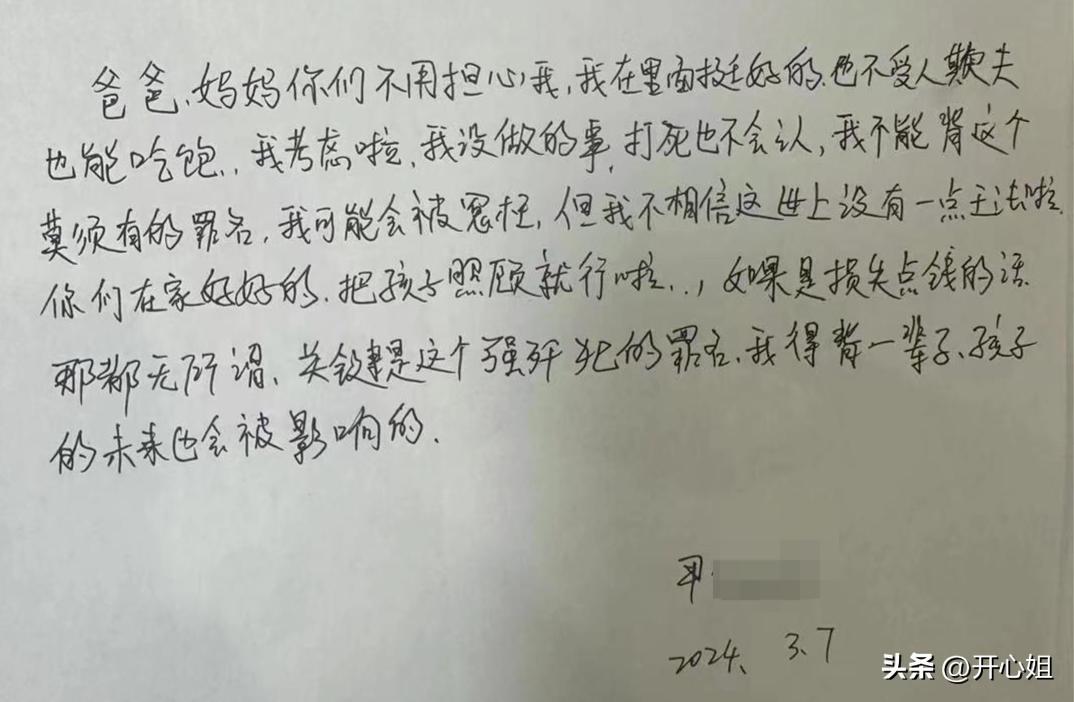 爸爸、妈妈你们不用担心我,我在里面挺好的.也不受人欺夫
也能吃饱..我考虑啦,我没做的事,打死也不会认,我不能背这个
莫须有的罪名,我可能会被冤枉,但我不相信这世上没有一点王法啦.
你们在家好好的.把孩子照顾就行啦..,如果是损失点钱的话
那都无所谓、关键是这个强奸犯的罪名、我得背一辈子、孩子
的未来也会被影响的.
2024、3.7
头条 @开心姐